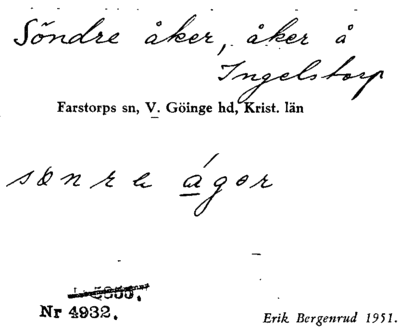 Söndre åker, åker å
Ingelstorp
Farstorps sn, V. Göinge hd, Krist. län
sønrɐ ágər
Nr 4932.
Erik Bergenrud 1951.